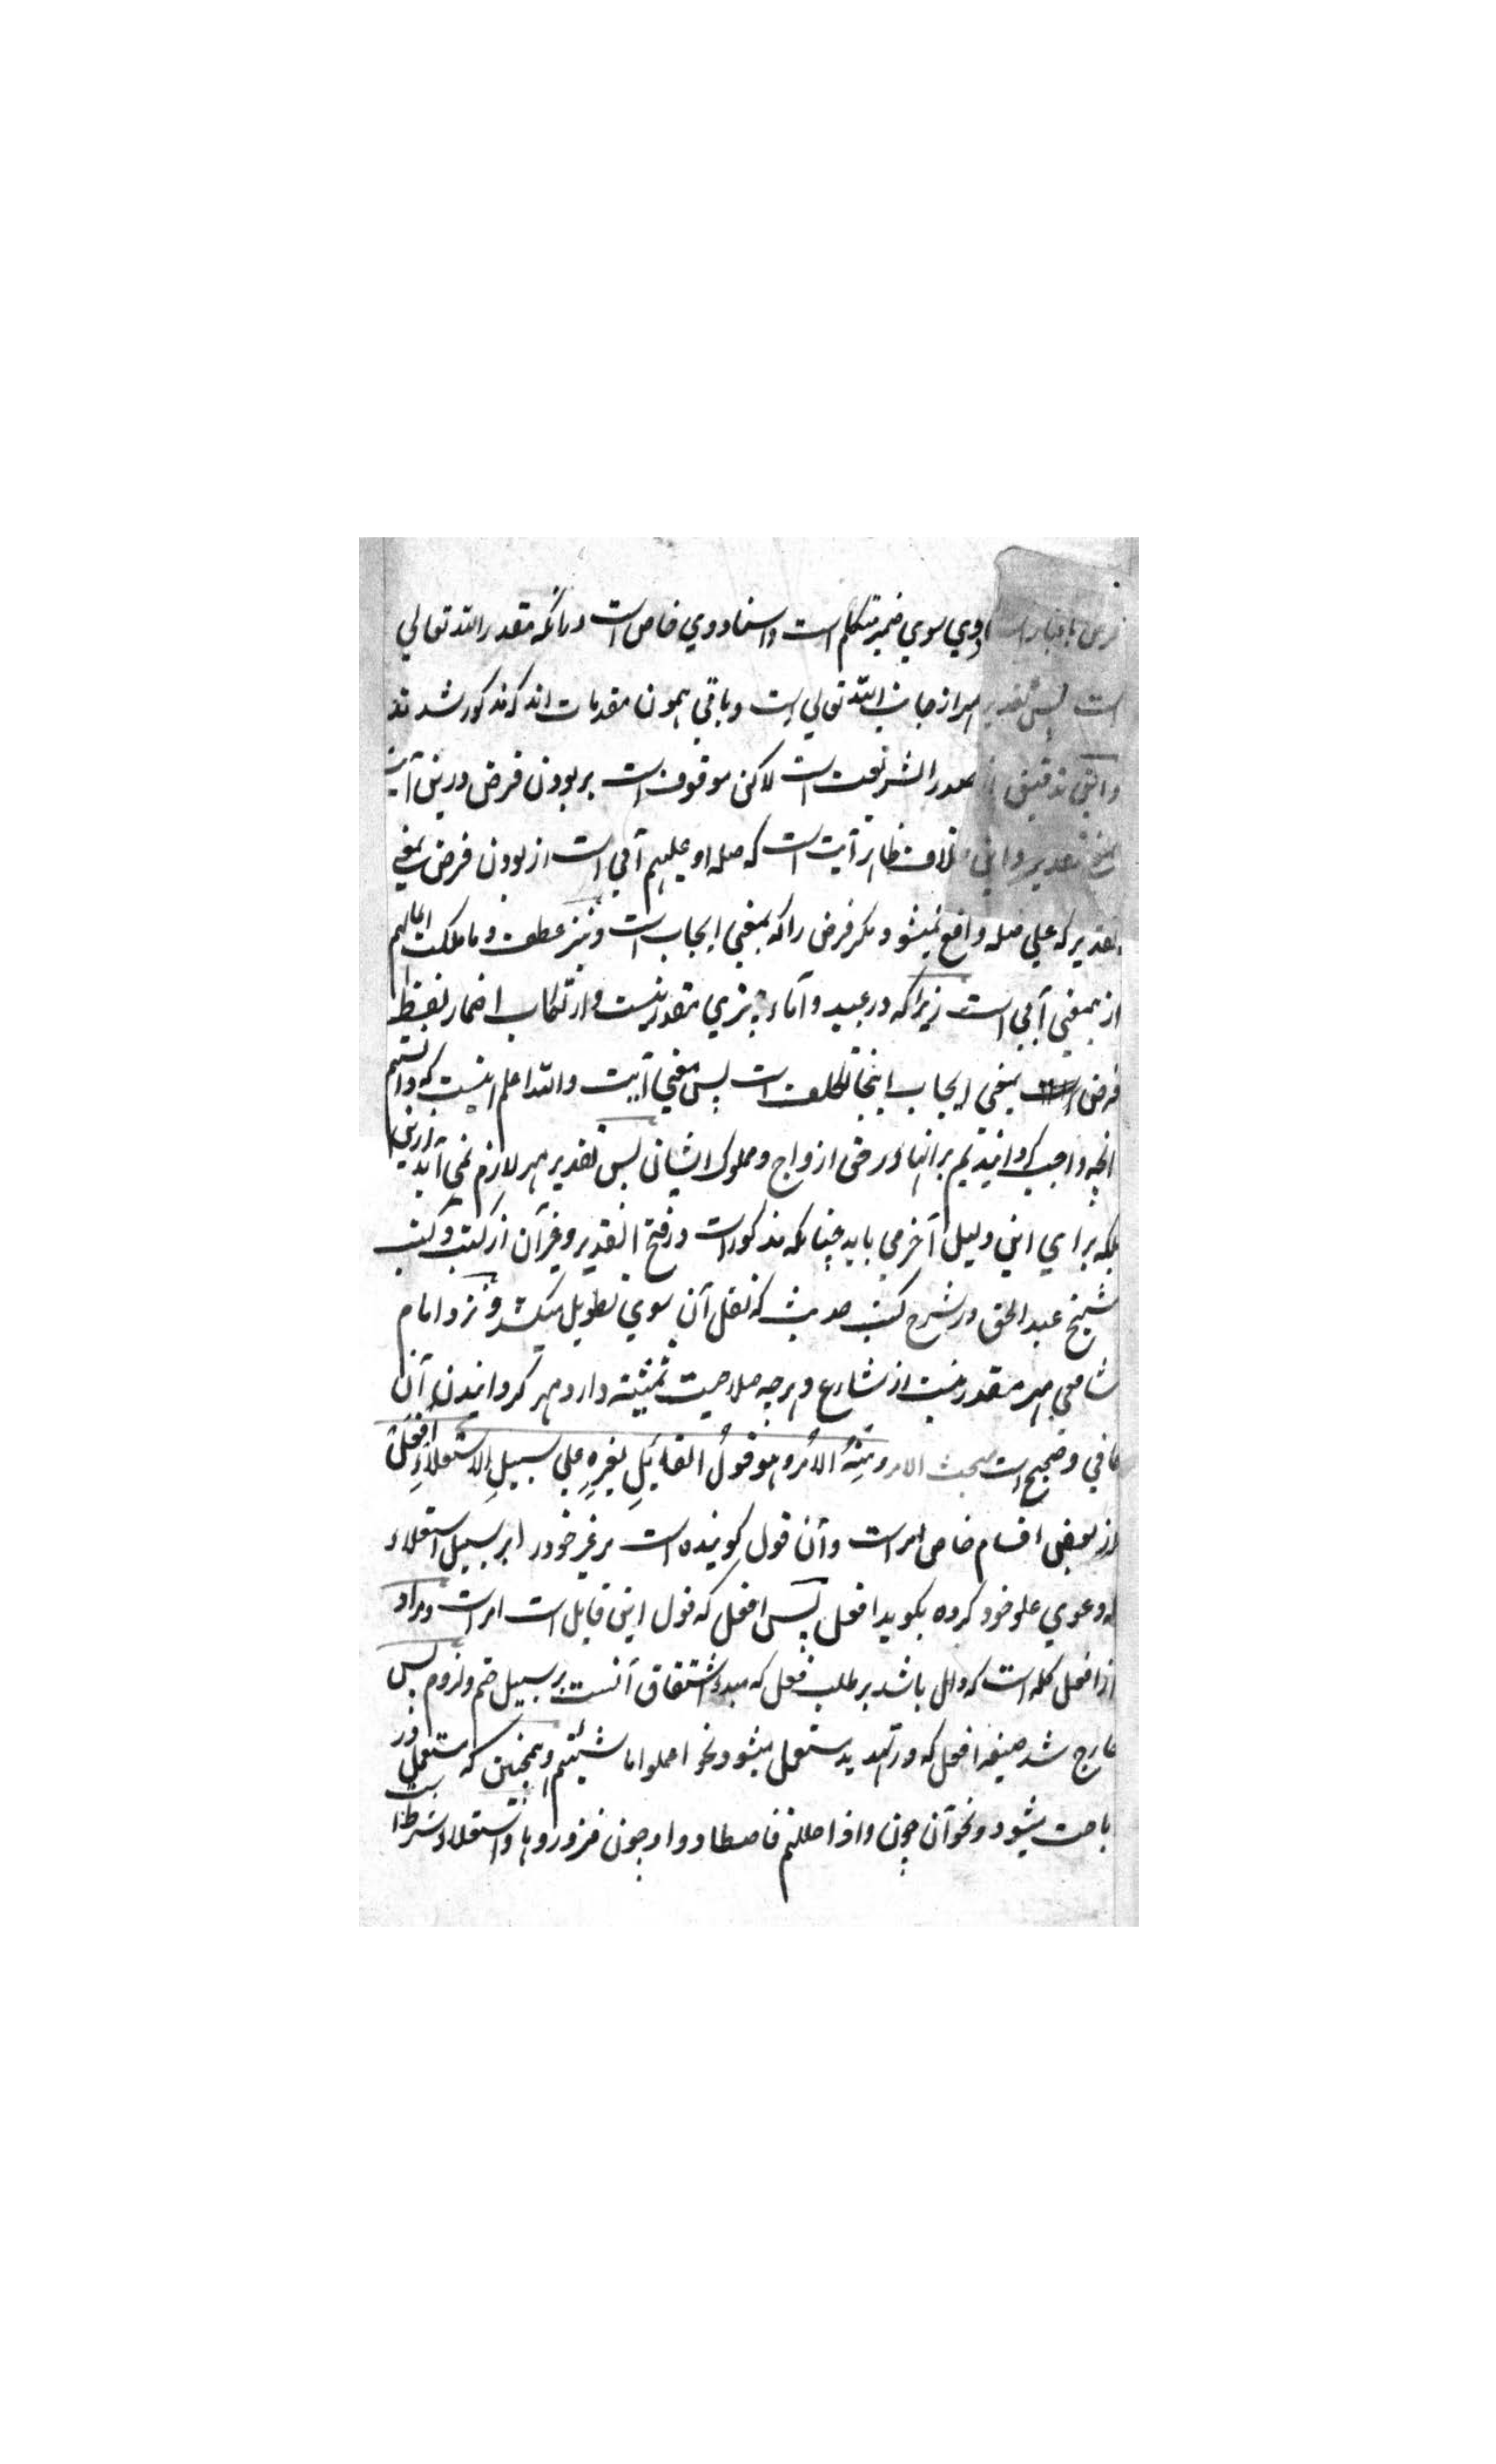 فرض باعتبار اسناد وي سوي ضمير متكلم است واسناد وي خاص است درانكه مقدر الله تعالي
است پس تقدير مهر از جانب الله تعالي است وباقي همون مقدمات اند كه مذكور شدند
واين تدقيق از صدر الشريعت است لاكن موقوف است بر بودن فرض درين آيت
بمعني تقدير واين خلاف ظاهر آيت است كه صله او عليهم آبي است از بودن فرض بمعني
تقدير كه علي صله واقع نميشود مگر فرض را كه بمعني ايجاب است ونيز عطف وما ملكت ايمانهم
ازين معني آبي است زيرا كه در عبيد وآماء چيزي مقدر نيست وارتكاب اضمار لفظ
فرض بمعني ايجاب اينجا تكلف است پس معني آيت والله اعلم اينست كه دانستيم
انچه واجب گردانيديم بر انها در حق ازواج ومملوك ايشان پس تقدير مهر لازم نمي آيد ازين
بلكه براي اين دليل آخر مي بايد چنانكه مذكور است در فتح القدير وغير آن از كتب وكتب
شيخ عبد الحق در شرح كتب حديث كه نقل آن سوي تطويل ميكشد ونزد امام
شافعي مهر مقدر نيست از شارع وهرچه صلاحيت ثمنيته دارد مهر گردانيدن آن
كافي وصحيح است مبحث الامر ومِنْهُ الاَمْرُ وهو قولُ القائِلِ لغيرِهِ علي سبيلِ الاستعلاءِ اِفْعَلْ
از بعضي اقسام خاص امر است وآن قول گوينده است مر غير خود را بر سبيل استعلاء
كه دعوي علو خود كرده بگويد افعل پس افعل كه قول اين قايل است امر است ومراد
از افعل كلمه است كه دال باشد بر طلب فعل كه مبدء اشتقاق آنست بر سبيل حتم ولزوم پس
خارج شد صيغه افعل كه در تهديد مستعمل ميشود نحو اعملوا ما شئتم وهمچنين كه مستعمل در
اباحت ميشود ونحو آن چون واذا حللتم فاصطادوا وچون فزوروها واستعلاء شرط است